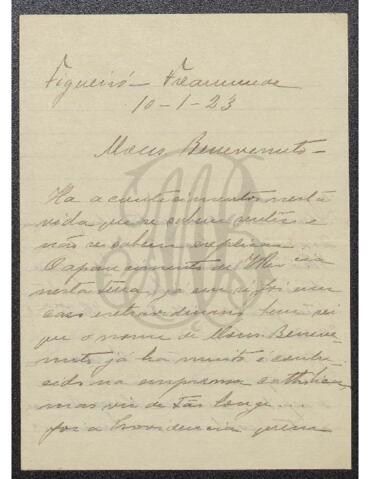 Figueiró - Freamunde
10-1-23
Mons Benevenuto -
Ha acontecimentos nesta
vida que se sabem sentir e
não se sabem explicar.
O aparecimento de V Rev cia
nesta terra, já em si foi um
caso extraordinario, bem sei
que o nome de Mons. Beneve-
nuto já ha muito é conhe-
cido na imprensa catholica,
mas vir de tão longe...
foi a Providencia quem